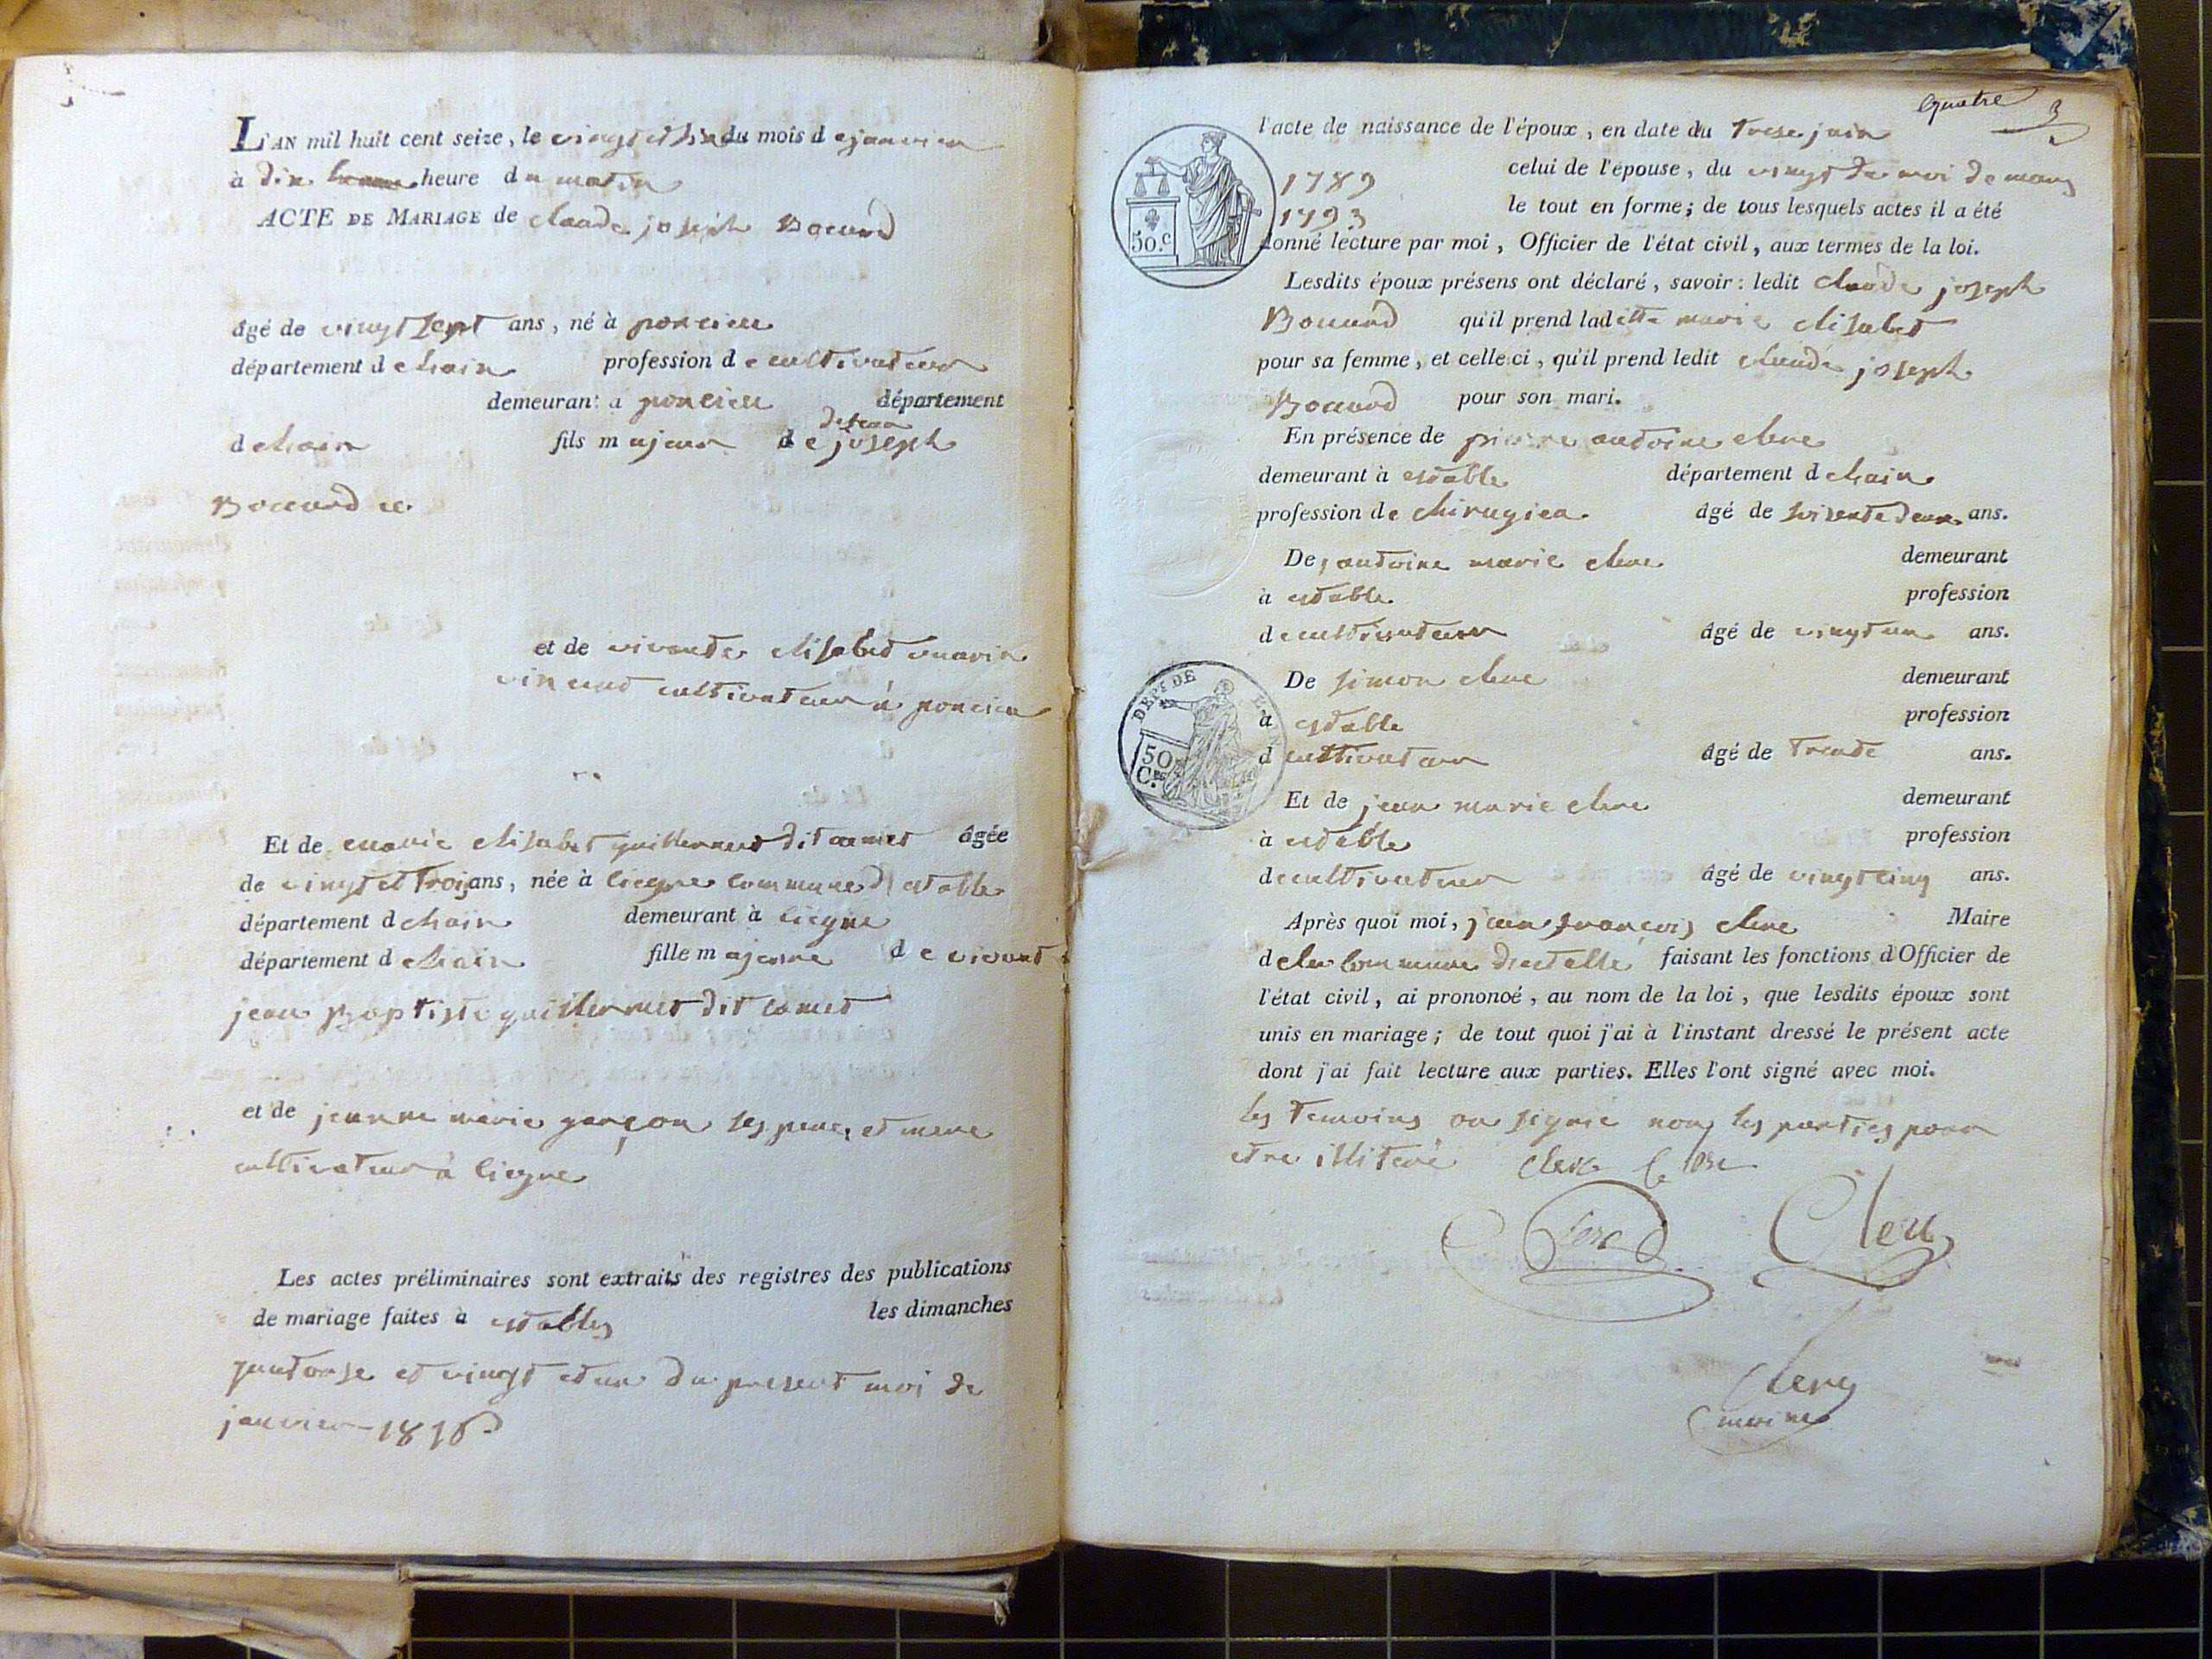 L'AN mil huit cent seize, le vingt et six du mois de janvier
à dix heure du matin
ACTE DE MARIAGE de claude joseph Bocuord
âgé de vingt sept ans, né à poncieu
département de lain profession de cultivateur
demeurant à poncieu département
de lain fils majeur de joseph
Bocuord
et de vivante elisabet marie
vincent cultivateur à poncieu
Et de marie elisabet guillermet dit comet âgée
de vingt et trois ans, née à liegne commune destable
département de lain demeurant à liegne
département de lain fille majeure de vivant
jean Baptiste guillermet dit comet
et de jeanne marie garçon ses pere et mere
cultivateur à liegne
Les actes préliminaires sont extraits des registres des publications
de mariage faites à estables les dimanches
quatorse et vingt et un du present moi de
janvier 1816
quatre
3
l'acte de naissance de l'époux, en date du trese juin
1789 celui de l'épouse, du vingt du moi de mars
1793 le tout en forme; de tous lesquels actes il a été
donné lecture par moi, Officier de l'état civil, aux termes de la loi.
50.c
Lesdits époux présens ont déclaré, savoir: ledit claude joseph
Bocuord qu'il prend ladette marie elisabet
pour sa femme, et celle-ci, qu'il prend ledit claude joseph
Bocuord pour son mari.
En présence de pierre antoine clerc
demeurant à estable département de lain
profession de chirugien âgé de soisente deux ans.
De antoine marie clerc demeurant
à estable profession
de cultivateur âgé de vingt un ans.
De simon clerc demeurant
à estable profession
d cultivateur âgé de trente ans.
DEPT DE L'AIN
50 Ces
Et de jean marie clerc demeurant
à estable profession
de cultivateur âgé de vingt cinq ans.
Après quoi moi, jean françois clerc Maire
de la commune destable faisant les fonctions d'Officier de
l'état civil, ai prononcé, au nom de la loi, que lesdits époux sont
unis en mariage; de tout quoi j'ai à l'instant dressé le présent acte
dont j'ai fait lecture aux parties. Elles l'ont signé avec moi.
les temoins on signié non les parties pour
etre illiteré Clerc
Clerc Clerc
Clerc
maire